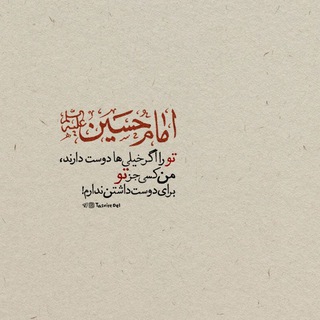 امام حسین علیه السلام
تو را اگر خیلی‌ها دوست دارند،
من کسی جز تو
برای دوست داشتن ندارم!